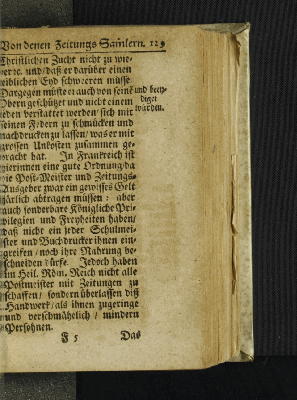 Von denen Zeitungs Samlern. 129
Christlichen Zucht nicht zu wie-
und daß er darüber einen
leiblichen Eyd schweeren müsse.
Dargegen müste er auch von seine
und beey-
diget
würden.
Obern geschützet und nicht einem
ieden verstattet werden/ sich mit
seinen Federn zu schmücken und
nachdrucken zu lassen/ was er mit
grossen Unkosten zusammen ge-
bracht hat. In Franckreich ist
hierinnen eine gute Ordnung/ da
die Post-Meister und Zeitungs-
Ausgeber zwar ein gewisses Gelt
järlich abtragen müssen: aber
auch sonderbare Königliche Pri-
vilegien und Freyheiten haben/
daß nicht ein jeder Schulmei-
ster und Buchdrucker ihnen ein-
greifen/ noch ihre Nahrung be-
schneiden dürfe. Jedoch haben
im Heil. Röm. Reich nicht alle
Postmeister mit Zeitungen zu
schaffen/ sondern überlassen diß
Handwerk/ als ihnen zugeringe
und verschmähelich/ mindern
Persohnen.
F 5 Das